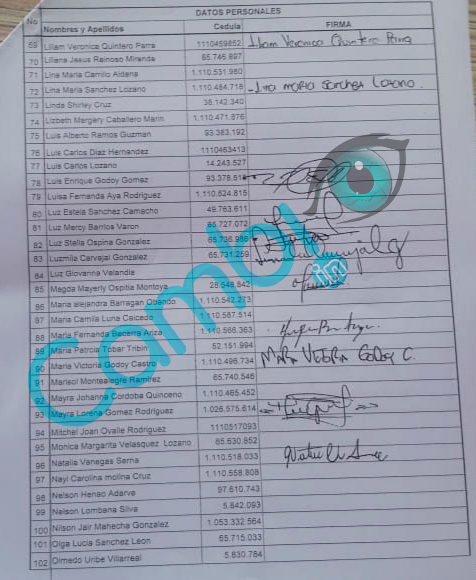 No DATOS PERSONALES
Nombres y Apellidos Cedula FIRMA
69 Liliam Veronica Quintero Parra 1110459852 Liliam Veronica Quintero Parra
70 Liliana Jesus Rainoso Miranda 65.746.897
71 Lina Maria Carrillo Aldana 1.110.531.980
72 Lina Maria Sanchez Lozano 1.110.484.718 Lina Maria Sanchez Lozano.
73 Linda Shirley Cruz 38.142.340
74 Lizbeth Margery Caballero Marin 1.110.471.676
75 Luis Alberto Ramos Guzman 93.383.192
76 Luis Carlos Diaz Hernandez 1110463413
77 Luis Carlos Lozano 14.243.527
78 Luis Enrique Godoy Gomez
79 Luisa Fernanda Aya Rodriguez 1.110.524.815
80 Luz Estela Sanchez Camacho 49.763.611
81 Luz Mercy Barrios Varon 65.727.072
82 Luz Stella Ospina Gonzalez 65.736.986
83 Luzmila Carvajal Gonzalez 65.731.259
84 Luz Giovanna Velandia
85 Magda Mayerly Ospitia Montoya 28.546.642
86 Maria alejandra Barragan Obando 1.110.542.273
87 Maria Camila Luna Caicedo 1.110.587.514
88 Maria Fernanda Becerra Ariza 1.110.566.363
89 Maria Patricia Tobar Tribin 52.151.994
90 Maria Victoria Godoy Castro 1.110.496.734 Maria Victoria Godoy C.
91 Marisol Montealegre Ramirez 65.740.546
92 Mayra Johanna Cordoba Quinceno 1.110.465.452
93 Mayra Lorena Gomez Rodriguez 1.026.575.614
94 Mitchel Joan Ovalle Rodriguez 1110517093
95 Monica Margarita Velasquez Lozano 65.630.852
96 Natalia Vanegas Serna 1.110.518.033
97 Nayi Carolina molina Cruz 1.110.558.808
98 Nelson Henao Adarve 97.610.743
99 Nelson Lombana Silva 5.842.093
100 Nilson Jair Mahecha Gonzalez 1.053.332.564
101 Olga Lucia Sanchez Leon 65.715.033
102 Olmedo Uribe Villarreal 5.830.784
Cambio
in